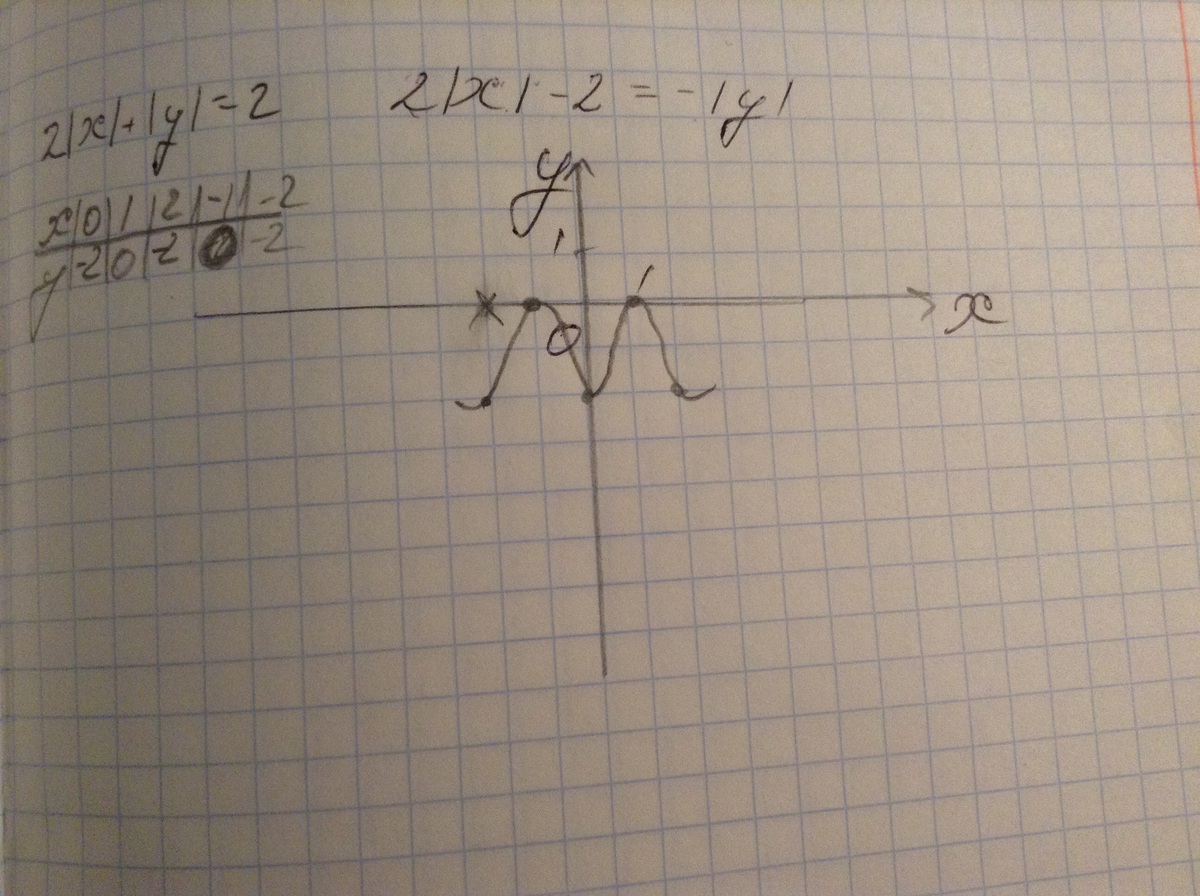 2|x|+|y|=2
2|x|-2=-|y|
x|0|1|2|-1|-2
y|-2|0|-2|0|-2
y
1
1
0
x